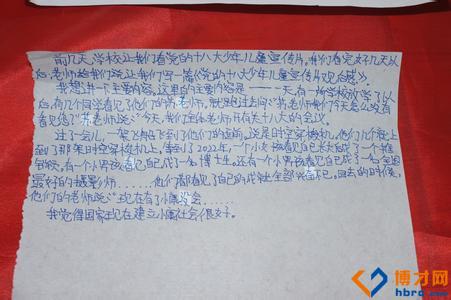 前几天,学校让我们看党的十八大少年儿童宣传片,我们看完好几天以
后,老师给我们说让我们写一篇《党的十八大少年儿童宣传片观后感》。
我想讲一下主要内容。这里的主要内容是一一一一天,有一所学校放学了以
后,有几个同学看见了他们的老师,就跑过去问:老师我们今天怎么没有
看见您?老师说:今天,我们全体老师开有关十八大的会议。
过了一会儿,一架飞船飞到了他们的面前。说是时空穿梭机,他们几个就上
到了那架时空穿梭机上,传到了2022年,一个小女孩看见自己长大成了一个
有一个小男孩看见自己成了一名博士生。还有一个小男孩看见自己成了一名全国
最好的摄影师……他们都看见了自己的成就全部兴奋不已。回去的时候,
他们的老师说:现在有了小康社会……
我觉得国家现在建立小康社会很好。
博才网
hbrc.com